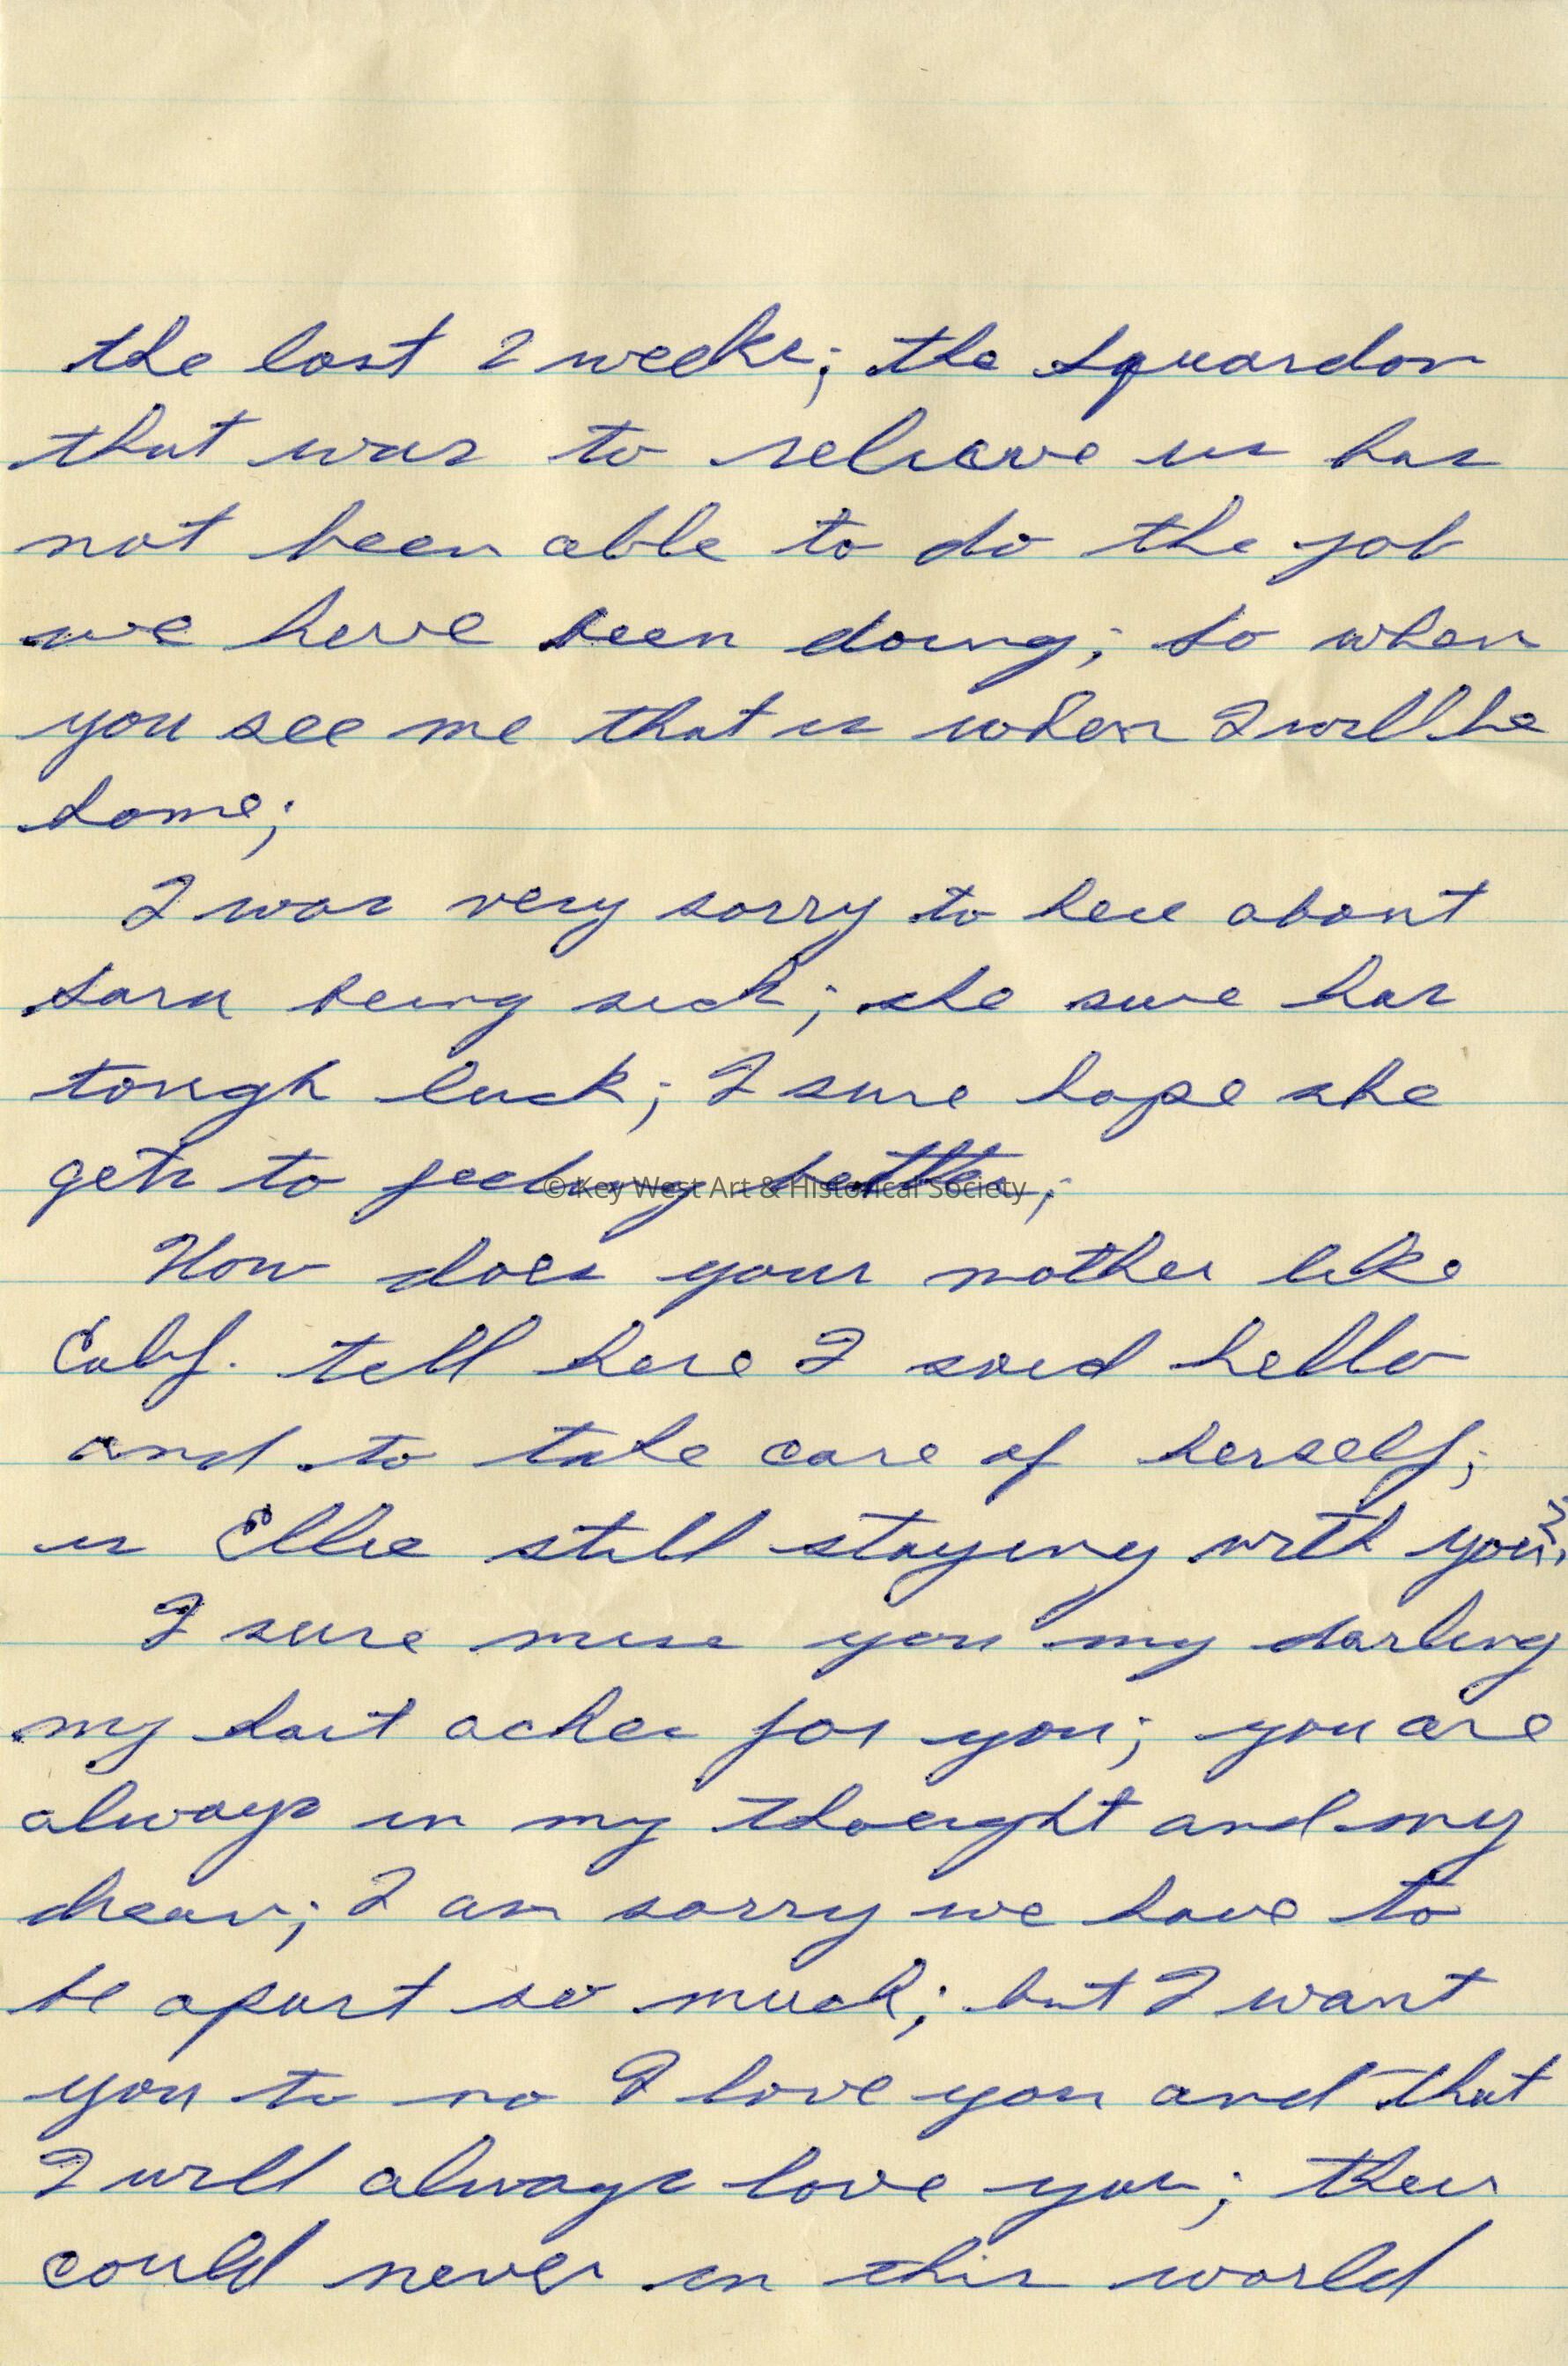 the last 2 weeks; the squardon
that was to relieve us has
not been able to do the job
we have been doing; so when
you see me that is when I will be
home;
I was very sorry to hear about
Sara being sick; she sure has
tough luck; I sure hope she
gets to feeling better;
© Key West Art & Historical Society
How does your mother like
Calif. tell here I said hello
and to take care of herself;
is Ellie still staying with you?
I sure miss you my darling
my hart aches for you; you are
always in my thought and my
dream; I am sorry we have to
be apart so much; but I want
you to no I love you and that
I will always love you; their
could never in this world